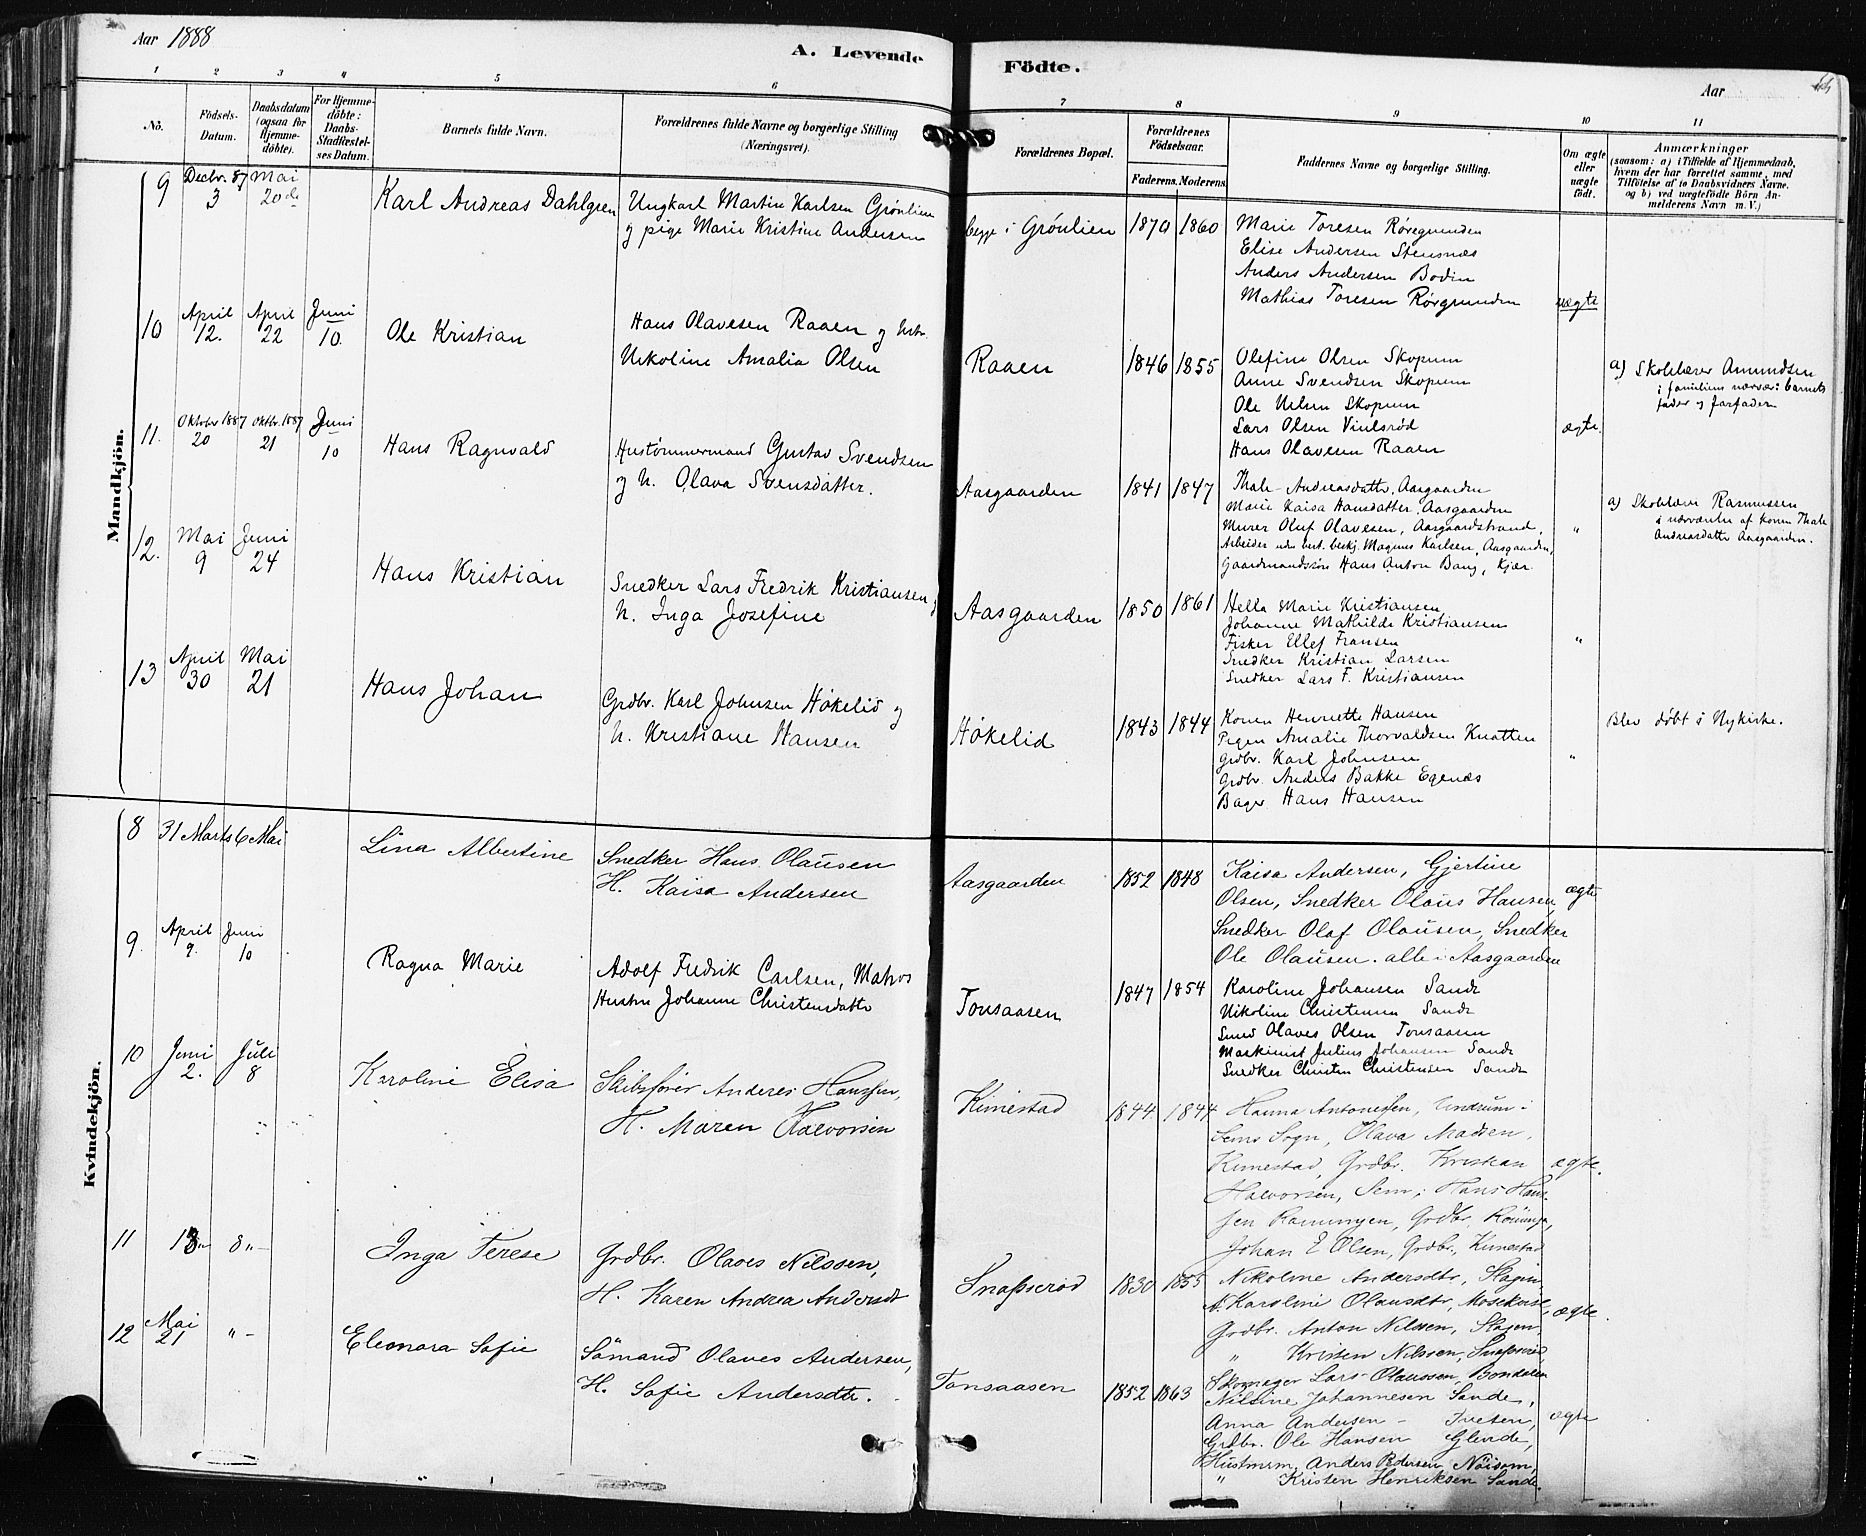 Aar 1888
A. Levende Födte.
Aar
1 2 3 4 5 6 7 8 9 10 11
No.
Födsels-Datum.
Daabsdatum (ogsaa for Hjemme-döbte).
For Hjemme-döbte: Daabs-Stadfæstel-ses Datum.
Barnets fulde Navn.
Forældrenes fulde Navne og borgerlige Stilling (Næringsvei).
Forældrenes Bopæl.
Forældrenes Födselsaar.
Faderens. Moderens.
Faddernes Navne og borgerlige Stilling.
Om ægte eller uægte födt.
Anmærkninger
(saasom: a) i Tilfælde af Hjemmedaab, hvem der har forrettet samme, med Tilföielse af to Daabsvidners Navne. og b) ved uægtefödte Börn An-melderens Navn m. V.)
Mandkjön.
9 Decbr. 87 3 Mai 20de
Karl Andreas Dahlgren
Ungkarl Martin Karlsen Grönlien
og pige Marie Kristine Andersen
begge i Grönlien 1870 1860
Marie Toresen Röregrunden
Elise Andersen Stensnæs
Anders Andersen Bodin
Mathias Toresen Rörgrunden
uægte
10 April 12. April 22 Juni 10.
Ole Kristian
Hans Olavesen Raaen og Hstr.
Nikoline Amalia Olsen
Raaen 1846 1855
Olefine Olsen Skopum
Anne Svendsen Skopum
Ole Nilsen Skopum
Lars Olsen Vinlsröd
Hans Olavesen Raaen
ægte.
a) Skolelærer Amundsen
i familiens nærvær: barnets
fader og farfader
11. Oktober 1887 20 Oktbr. 1887 21 Juni 10
Hans Ragnvald
Hustömmermand Gustav Svendsen
og H. Olava Svensdatter.
Aasgaarden 1841 1847
Thale Andreasdattr. Aasgaarden
Marie Kaisa Hansdatter, Aasgaarden
Murer Oluf Olavesen, Aasgaardstrand,
Arbeider uden best. beskj. Magnus Karlsen, Aasgaarden,
Gaardmandssön Hans Anton Bang, Kjær.
"
a) Skolelærer Rasmussen
i nærværelse af konen Thale
Andreasdattr Aasgaarden.
12. Mai 9 Juni 24
Hans Kristian
Snedker Lars Fredrik Kristiansen og
H. Inga Josefine
Aasgaarden 1850 1861
Hella Marie Kristiansen
Johanne Mathilde Kristiansen
Fisker Ellef Fransen
Snedker Kristian Larsen
Snedker Lars F. Kristiansen
"
13 April 30 Mai 21
Hans Johan
Grdbr. Karl Johnsen Hökelid og
H. Kristiane Hansen
Hökelid 1843 1844
Konen Henriette Hansen
Pigen Amalie Thorvaldsen Knatten
Grdbr. Karl Johnsen
Grdbr. Anders Bakke Egenæs
Bager Hans Hansen
"
Blev döbt i Nykirke.
Kvindekjön.
8 31 Marts 6 Mai
Lina Albertine
Snedker Hans Olausen
H. Kaisa Andersen
Aasgaarden 1852 1848
Kaisa Andersen, Gjertine
Olsen, Snedker Olaus Hansen,
Snedker Olaf Olausen, Snedker
Ole Olausen. alle i Aasgaarden
ægte
9. April 9. Juni 10
Ragna Marie
Adolf Fredrik Carlsen, Matros
Hustru Johanne Christensdattr
Tonsaasen 1847 1854
Karoline Johansen Sande
Nikoline Christensen Sande
Smed Olaves Olsen Tonsaasen
Maskinist Julius Johansen Sande
Snedker Christen Christensen Sande
10 Juni 2. Juli 8
Karoline Elisa
Skibsförer Anders Hanssen,
H. Maren Halvorsen
Kimestad 1844 1844
Hanna Antonessen, Undrum i
Sems Sogn, Olava Madsen,
Kimestad, Grdbr. Kristian
Halvorsen, Sem, Hans Hans-
sen Ramningen, Grdbr.
Johan E Olsen, Grdbr., Kimestad
ægte.
11 13 "- 8 "-
Inga Terese
Grdbr. Olaves Nilssen,
H. Karen Andrea Andersdt
Snapseröd 1830 1855
Nikoline Andersdtr, Slagen,
N. Karoline Olausdtr, Mosekvist,
Grdbr. Anton Nilssen, Slagen,
" Kristen Nilssen, Snapseröd,
Skomager Lars Olaussen, Bondalen
ægte.
12 Mai 21 "-
Eleonora Sofie
Sömand Olaves Andersen,
H. Sofie Andersdtr.
Tonsaasen 1852 1863
Nilsine Johannesen Sande,
Anna Andersen - Tveten,
Grdbr. Ole Hansen Glende,
Hustmrm. Anders Pedersen Nöisom,
" Kristen Henriksen Sande.
ægte